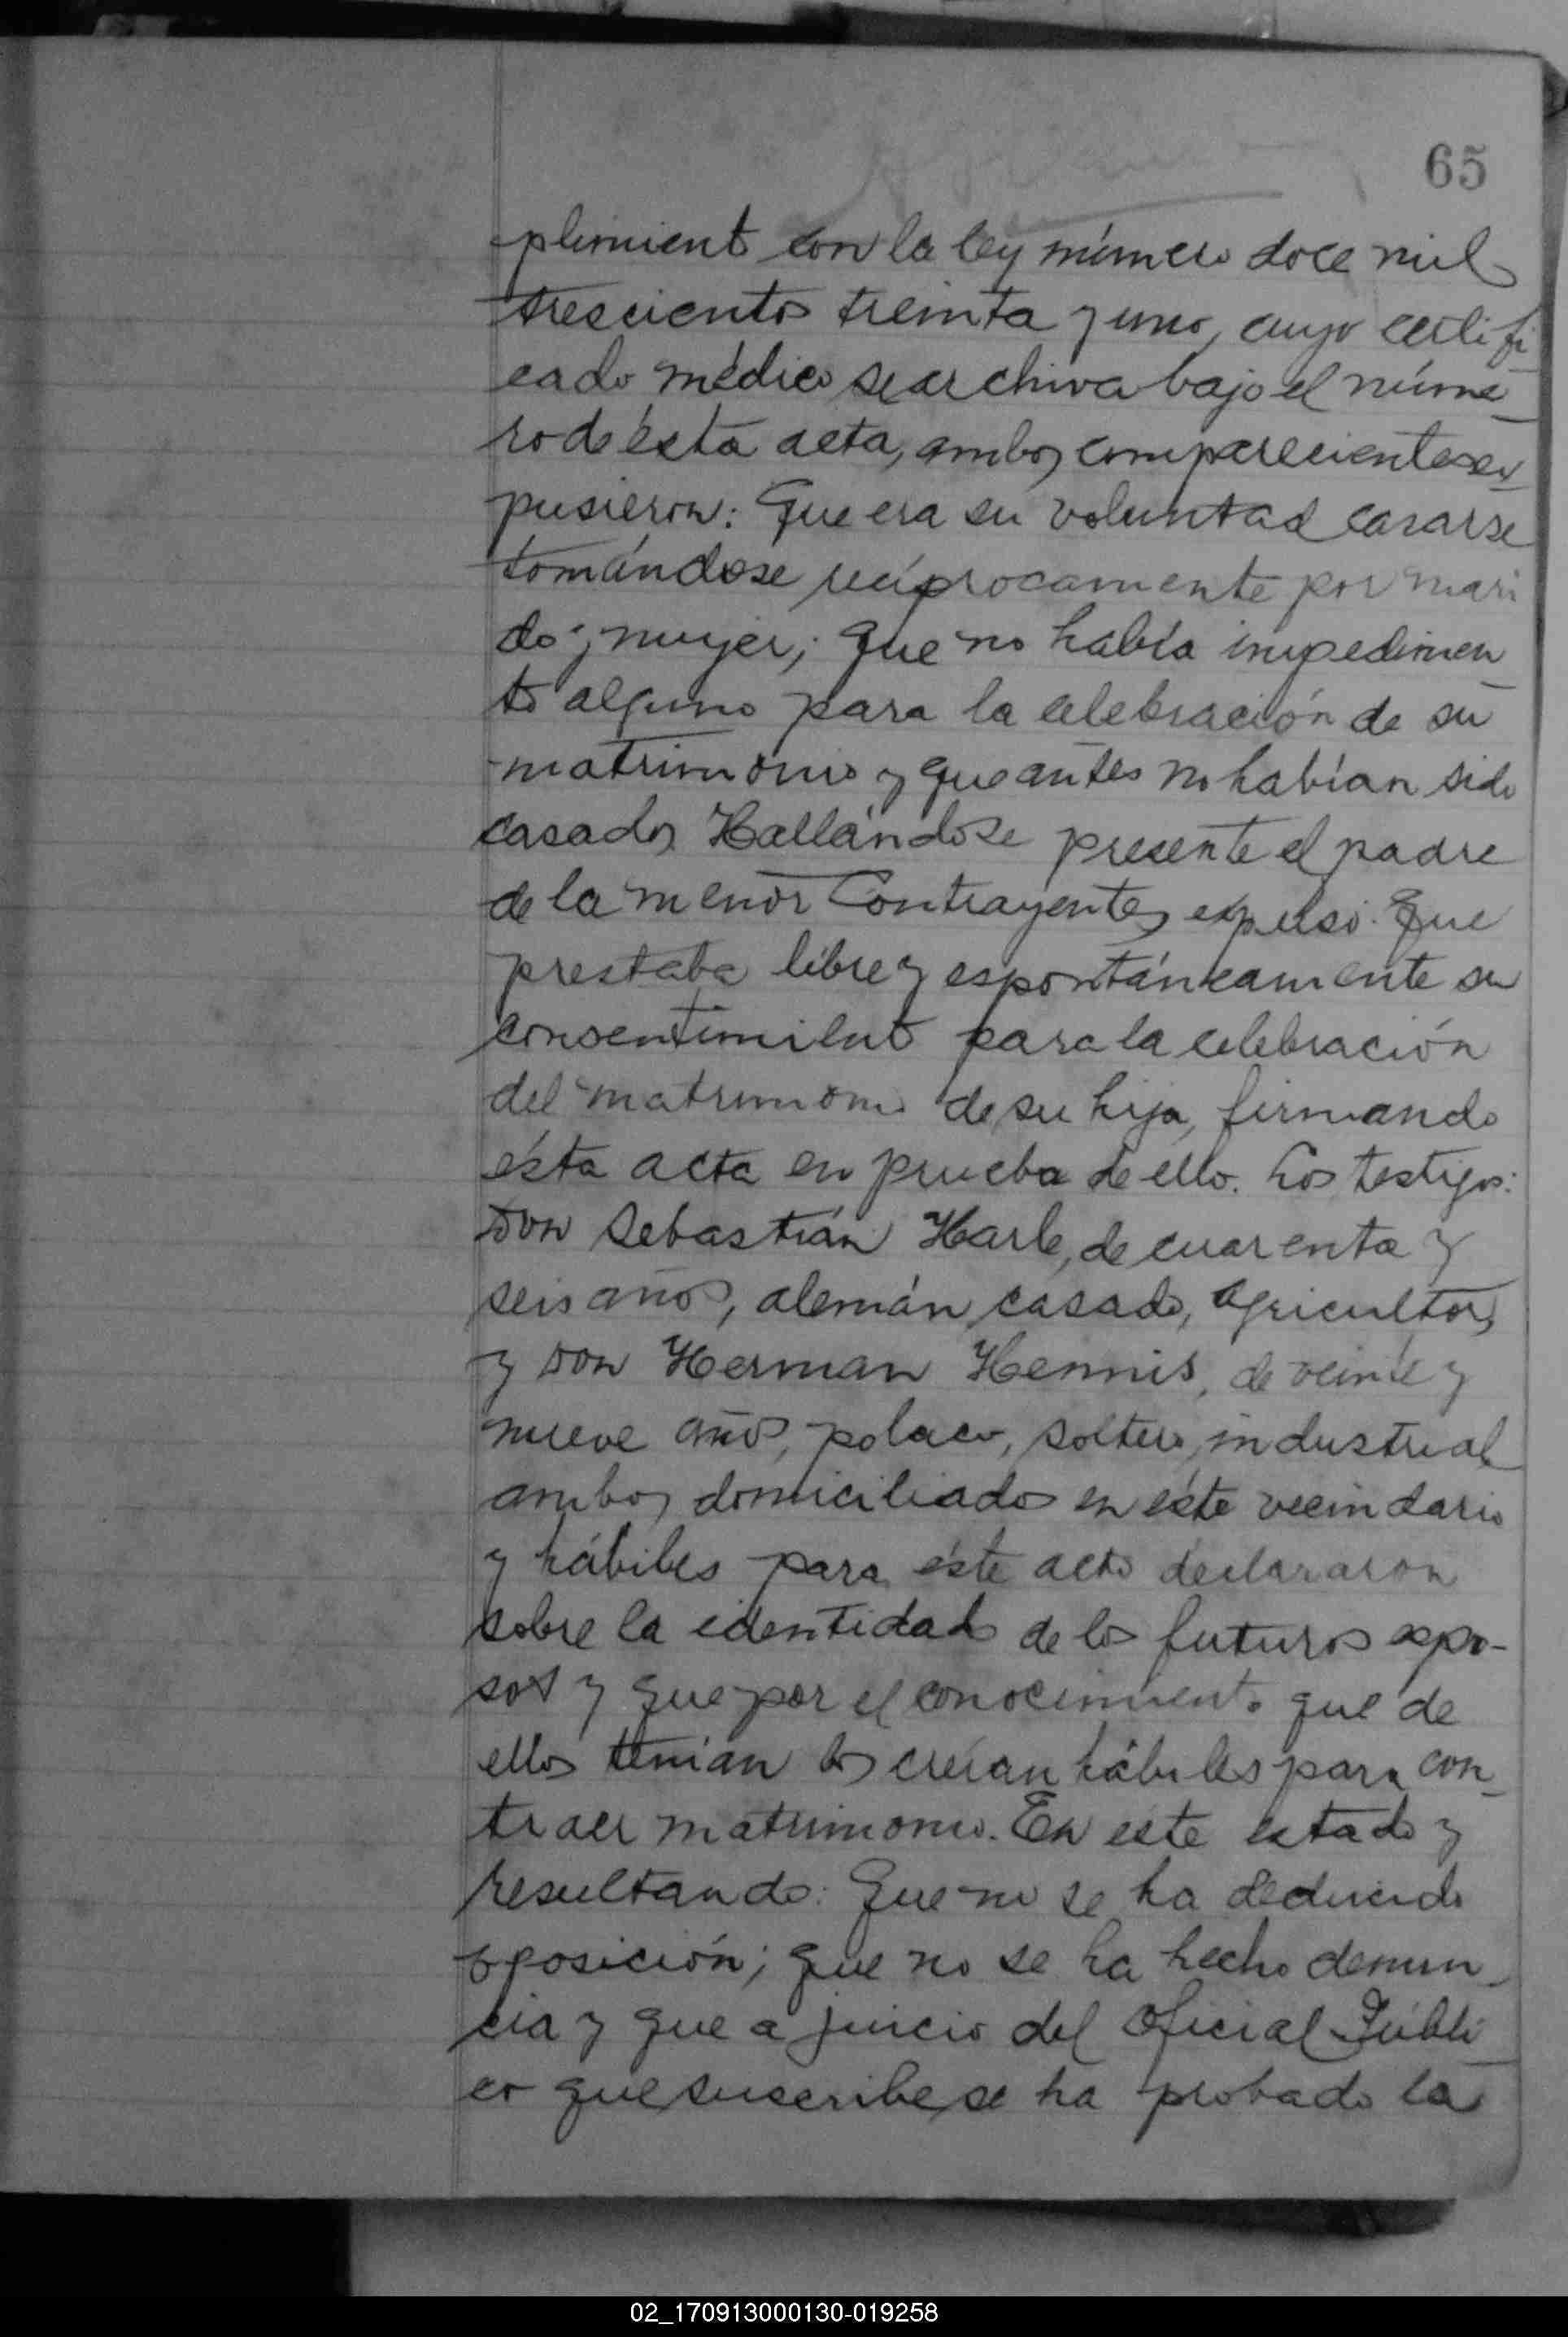 65
plimiento con la ley número doce mil
trescientos treinta y uno, cuyo certifi
cado médico se archiva bajo el núme_
ro de ésta acta, ambos comparecientes ex_
pusieron: Que era su voluntad casarse
tomándose recíprocamente por mari
do y mujer; que no había impedimen_
to alguno para la celebración de su
matrimonio y que antes no habían sido
casados Hallándose presente el padre
de la menor Contrayente, expuso: Que
prestaba libre y espontáneamente su
consentimiento para la celebración
del matrimonio de su hija, firmando
ésta acta en prueba de ello. Los testigos:
Don Sebastián Harle, de cuarenta y
seis años, alemán, casado, agricultor,
y Don Herman Hennis, de veinte y
nueve años, polaco, soltero, industrial
ambos domiciliados en éste vecindario
y hábiles para éste acto declararon
sobre la identidad de los futuros espo-
sos y que por el conocimiento que de
ellos tenían los creían hábiles para con_
traer matrimonio. En este estado y
resultando: Que no se ha deducido
oposición; que no se ha hecho denun_
cia y que a juicio del Oficial Públi_
co que suscribe se ha probado la
02_170913000130-019258